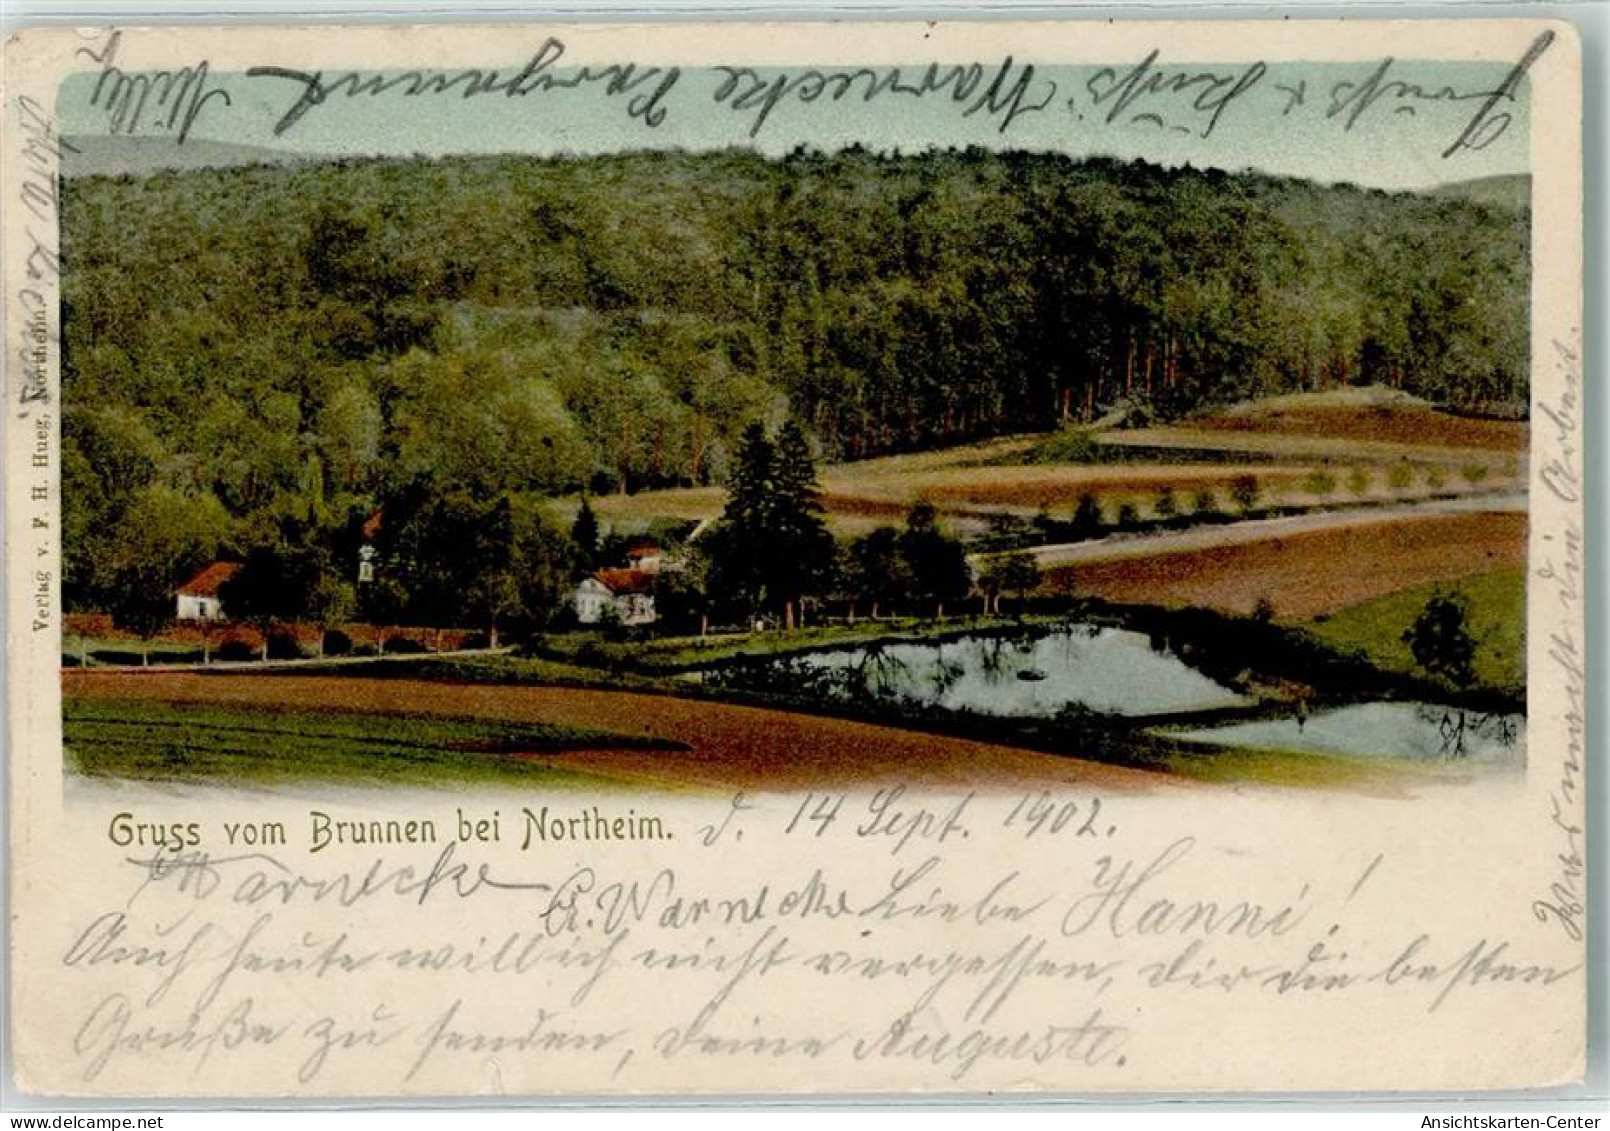 Gruß & Kuß Warnecke
Willy
Verlag v. F. H. Hueg, Northeim
Gruss vom Brunnen bei Northeim.
d. 14 Sept. 1902.
Warnecke
A. Warnecke
Liebe Hanni!
Auch heute will ich nicht vergessen, dir die besten
Grüße zu senden, deine Auguste.
Arbeit.
Ansichtskarten-Center